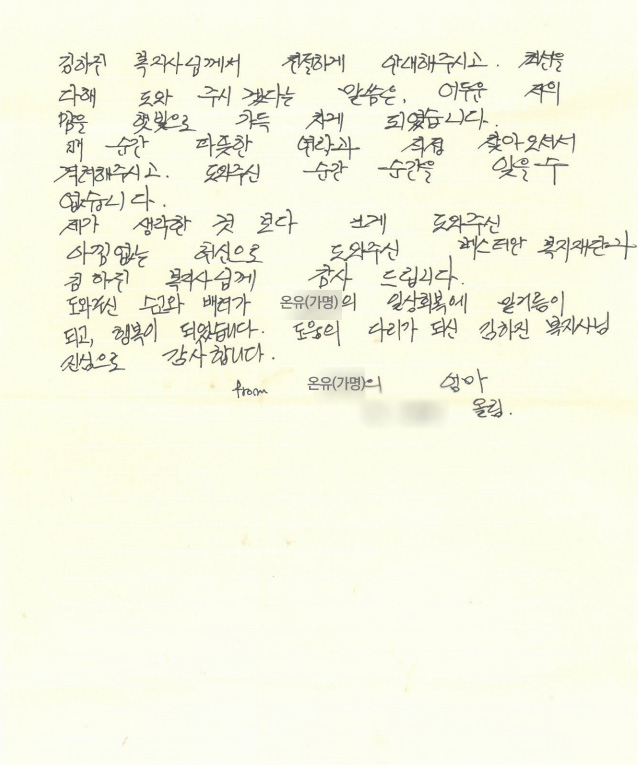 김하진 복지사님께서 친절하게 안내해주시고. 최선을
다해 도와 주시 겠다는 말씀은, 어두운 저의
맘을 햇빛으로 가득 차게 되었습니다.
매 순간 따뜻한 연락과 직접 찾아오셔서
격려해주시고. 도와주신 순간 순간을 잊을 수
없습니다.
제가 생각한 것 보다 크게 도와주신
아낌없는 헌신으로 도와주신 헤스티안 복지재단과
김하진 복지사님께 감사 드립니다.
도와주신 수고와 배려가 온유(가명)의 일상회복에 밑거름이
되고, 행복이 되었습니다. 도움의 다리가 되신 김하진 복지사님
진심으로 감사합니다.
from 온유(가명)의 엄마
올림.